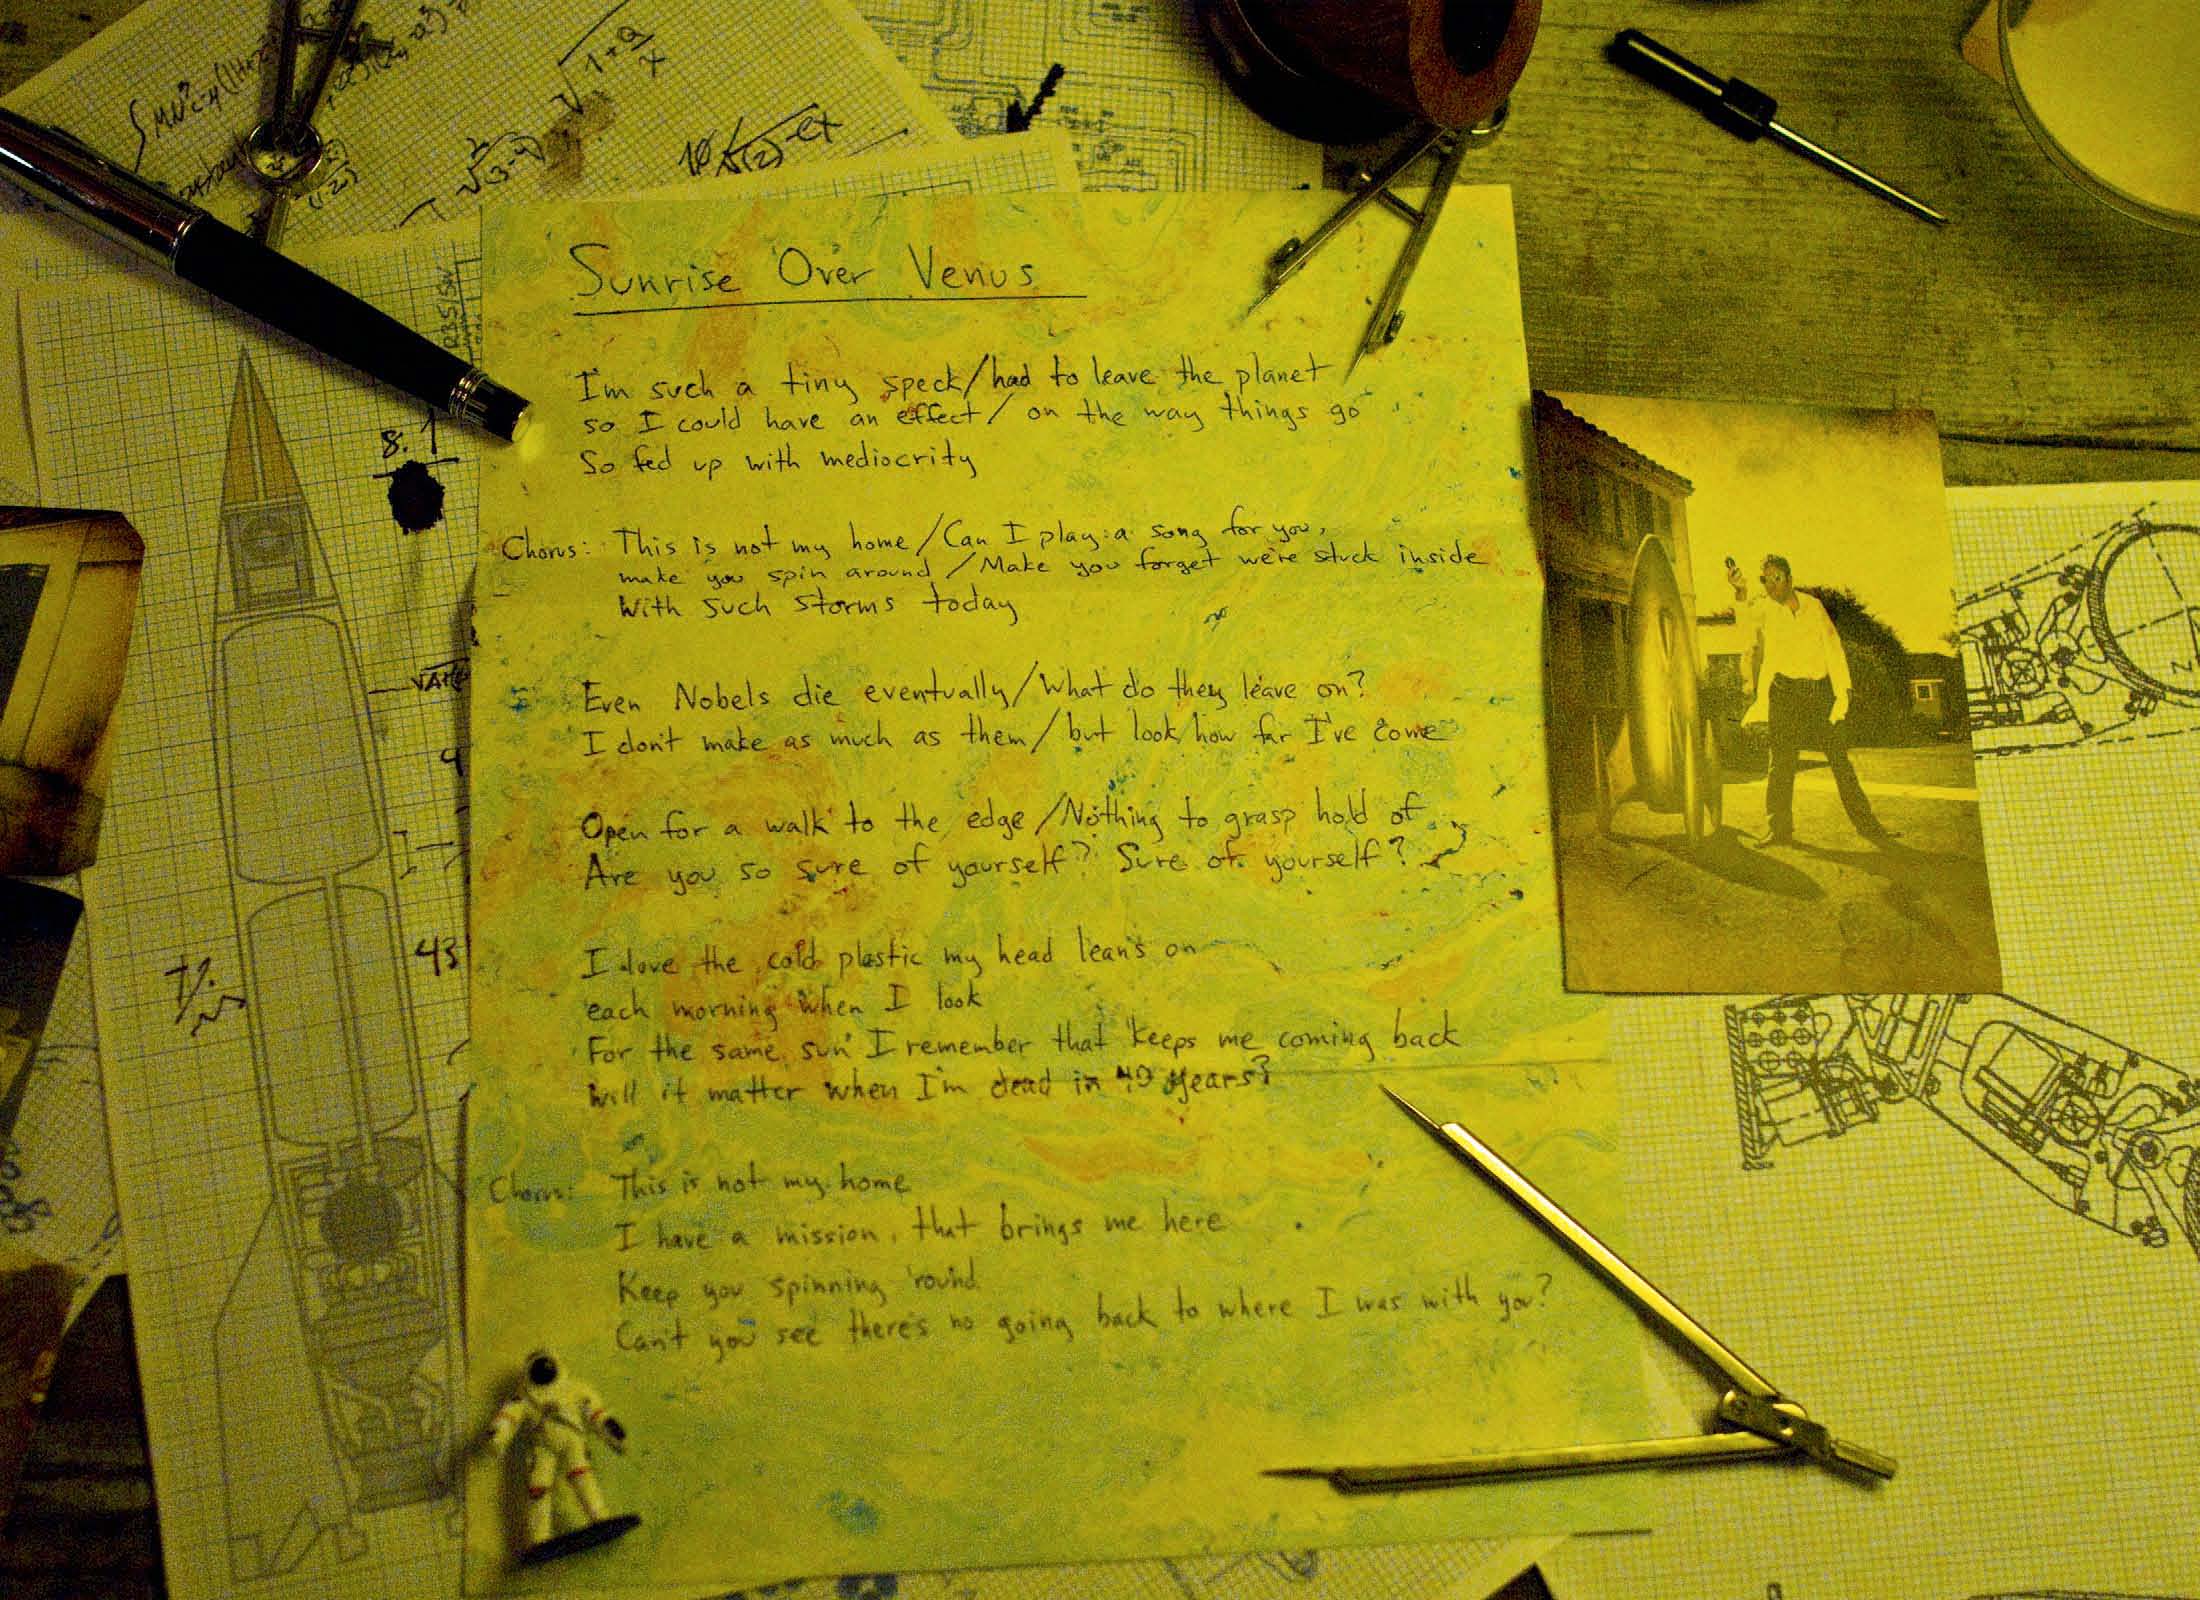 Sunrise Over Venus
I'm such a tiny speck/had to leave the planet
so I could have an effect/on the way things go
So fed up with mediocrity
Chorus: This is not my home/Can I play a song for you,
make you spin around/Make you forget we're stuck inside
With such storms today
Even Nobels die eventually/What do they leave on?
I don't make as much as them/but look how far I've come
Open for a walk to the edge/Nothing to grasp hold of
Are you so sure of yourself? Sure of yourself?
I love the cold plastic my head leans on
each morning when I look
For the same sun I remember that keeps me coming back
Will it matter when I'm dead in 40 years?
Chorus: This is not my home
I have a mission, that brings me here
Keep you spinning 'round
Can't you see there's no going back to where I was with you?
8.1
43
√1+a/x